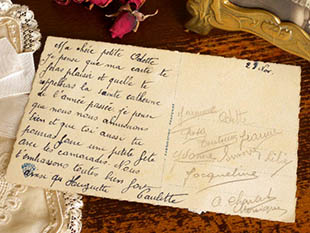 Ma chère petite Odette
je pense que ma carte te
fera plaisir et qu'elle te
rappelera la sainte catherine
de l'année passée je pense
que nous nous amusions
bien et que toi aussi tu
pourras faire une petite fête
avec les camarades. Nous
t'embrassons toutes bien fort
ainsi qu' Huguette
Paulette
29 Nov.
Odette
Jeanne
Yvonne
Lili
Jacqueline
Monique